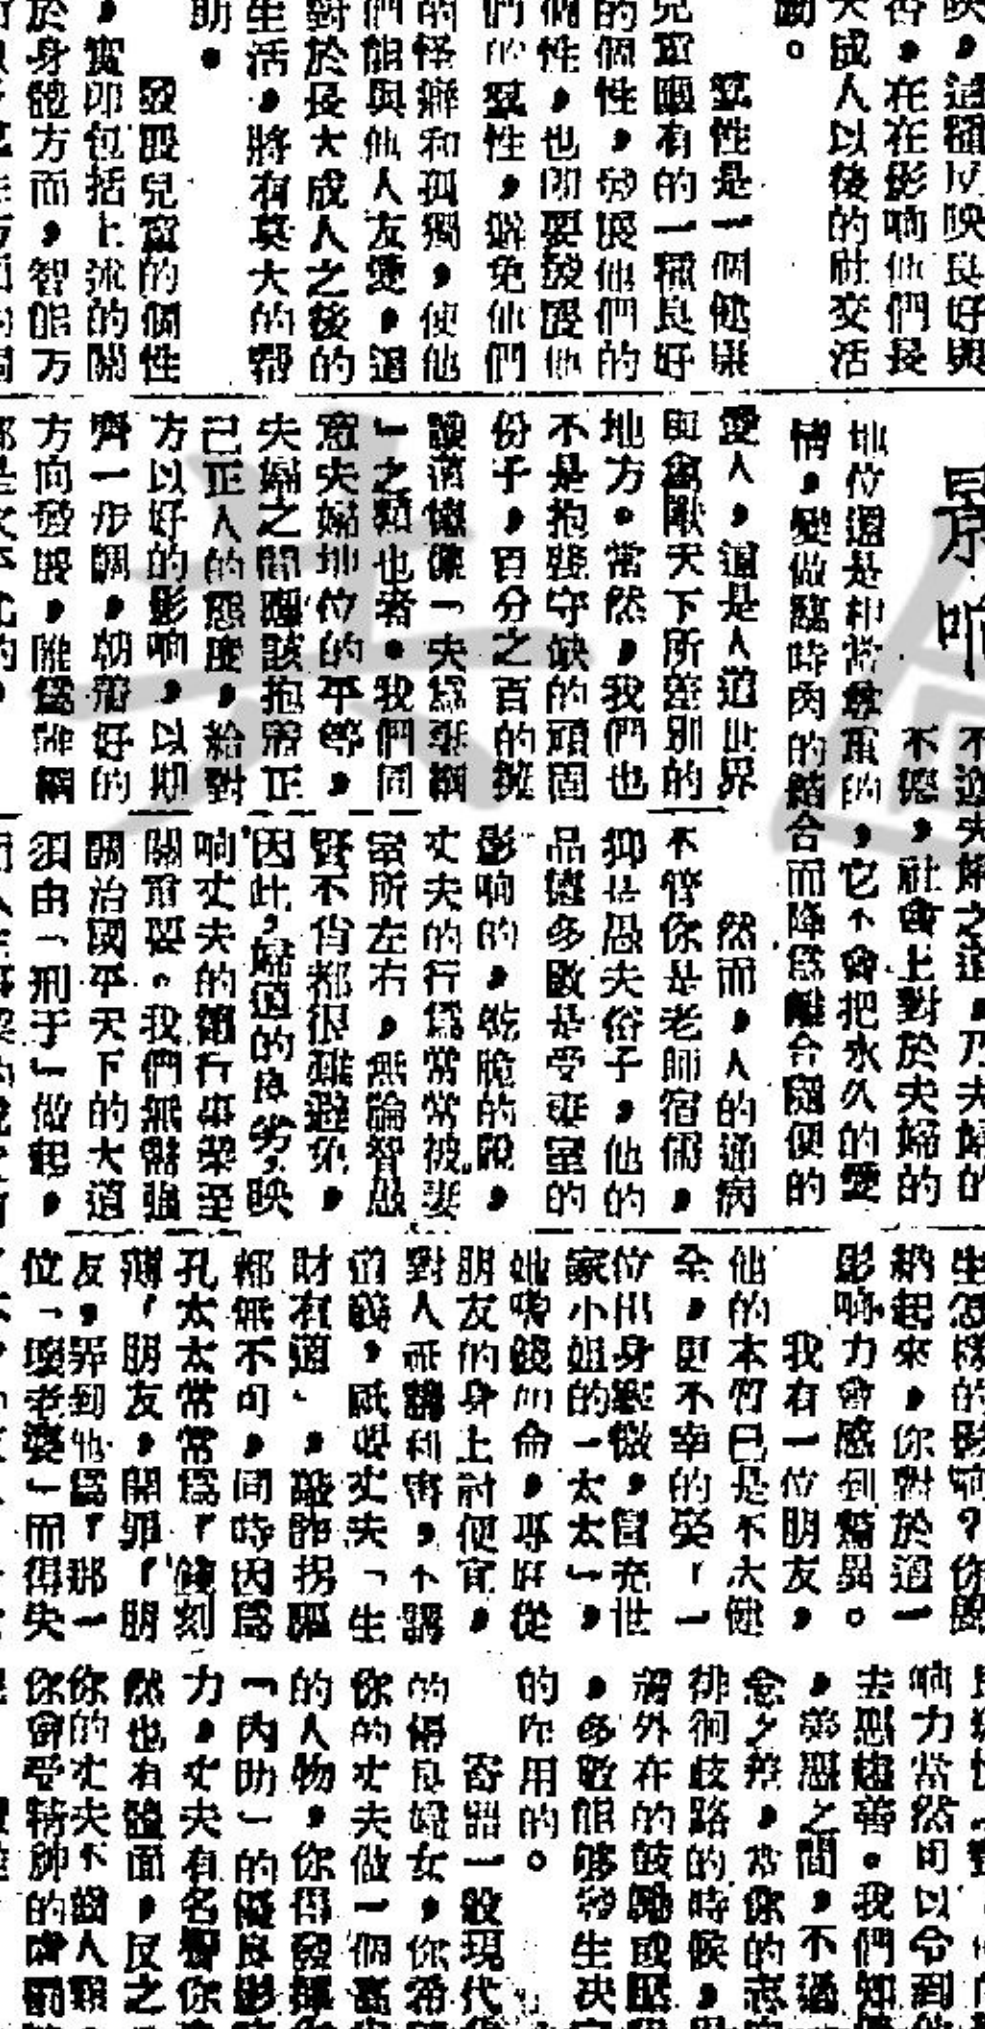 映，這種反映良好與
否，在在影响他們長
大成人以後的社交活
動。
羣性是一個健康
兒童應有的一種良好
的個性，發展他們的
個性，也即要發展他
們的羣性，避免他們
的怪癖和孤獨，使他
們能與他人友愛，這
對於長大成人之後的
生活，將有莫大的幫
助。
發展兒童的個性
，實即包括上述的關
於身體方面，智能方
响
夫婦之道，乃夫婦的
不德，社會上對於夫婦的
地位還是相當尊重的，它不會把永久的愛
情，變做臨時肉的結合而降爲離合隨便的
愛人，這是人道世界
與禽獸天下所差別的
地方。當然，我們也
不是抱殘守缺的頑固
份子，百分之百的擁
護「夫爲妻綱
」之類也者。我們同
意夫婦地位的平等，
夫婦之間應該抱着正
己正人的態度，給對
方以好的影响，以期
齊一步調，朝着好的
方向發展，
然而，人的通病
不管你是老師宿儒，
抑是愚夫俗子，他的
品德多數是受妻室的
影响的，乾脆的說，
丈夫的行爲常常被妻
室所左右，無論智愚
賢不肖都很難避免，
因此，婦道的良劣，映
响丈夫的德行事業至
關重要。我們無需強
調治國平天下的大道
須由「刑于」做起，
生怎樣的影响？你
納起來，你對於這一
影响力會感到驚異。
我有一位朋友，
他的本質已是不大健
全，更不幸的娶「一
位出身寒微，冒充世
家小姐的「太太」，
她愛錢如命，專在從
朋友的身上討便宜，
對人祇講利害，不講
道義，祇要丈夫「生
財有道」，敲詐拐騙
都無不可，同時因爲
孔太太常常爲「錢刻
薄「朋友，開罪「朋
友，弄到他爲「那一
位「壞老婆」而得失
响力當然可以令到
去惡趨善。我們知
，善惡之間，不過
念之差，當你的志
徘徊歧路的時候，
謂外在的鼓勵或壓
，多數能够發生决
的作用的。
寄語一般現代
的優良婦女，你希
你的丈夫做一個
的人物，你得發揮
「內助」的優良影
力，丈夫有名譽你
然也有體面，反之
你的丈夫不齒人類
你會受精神的